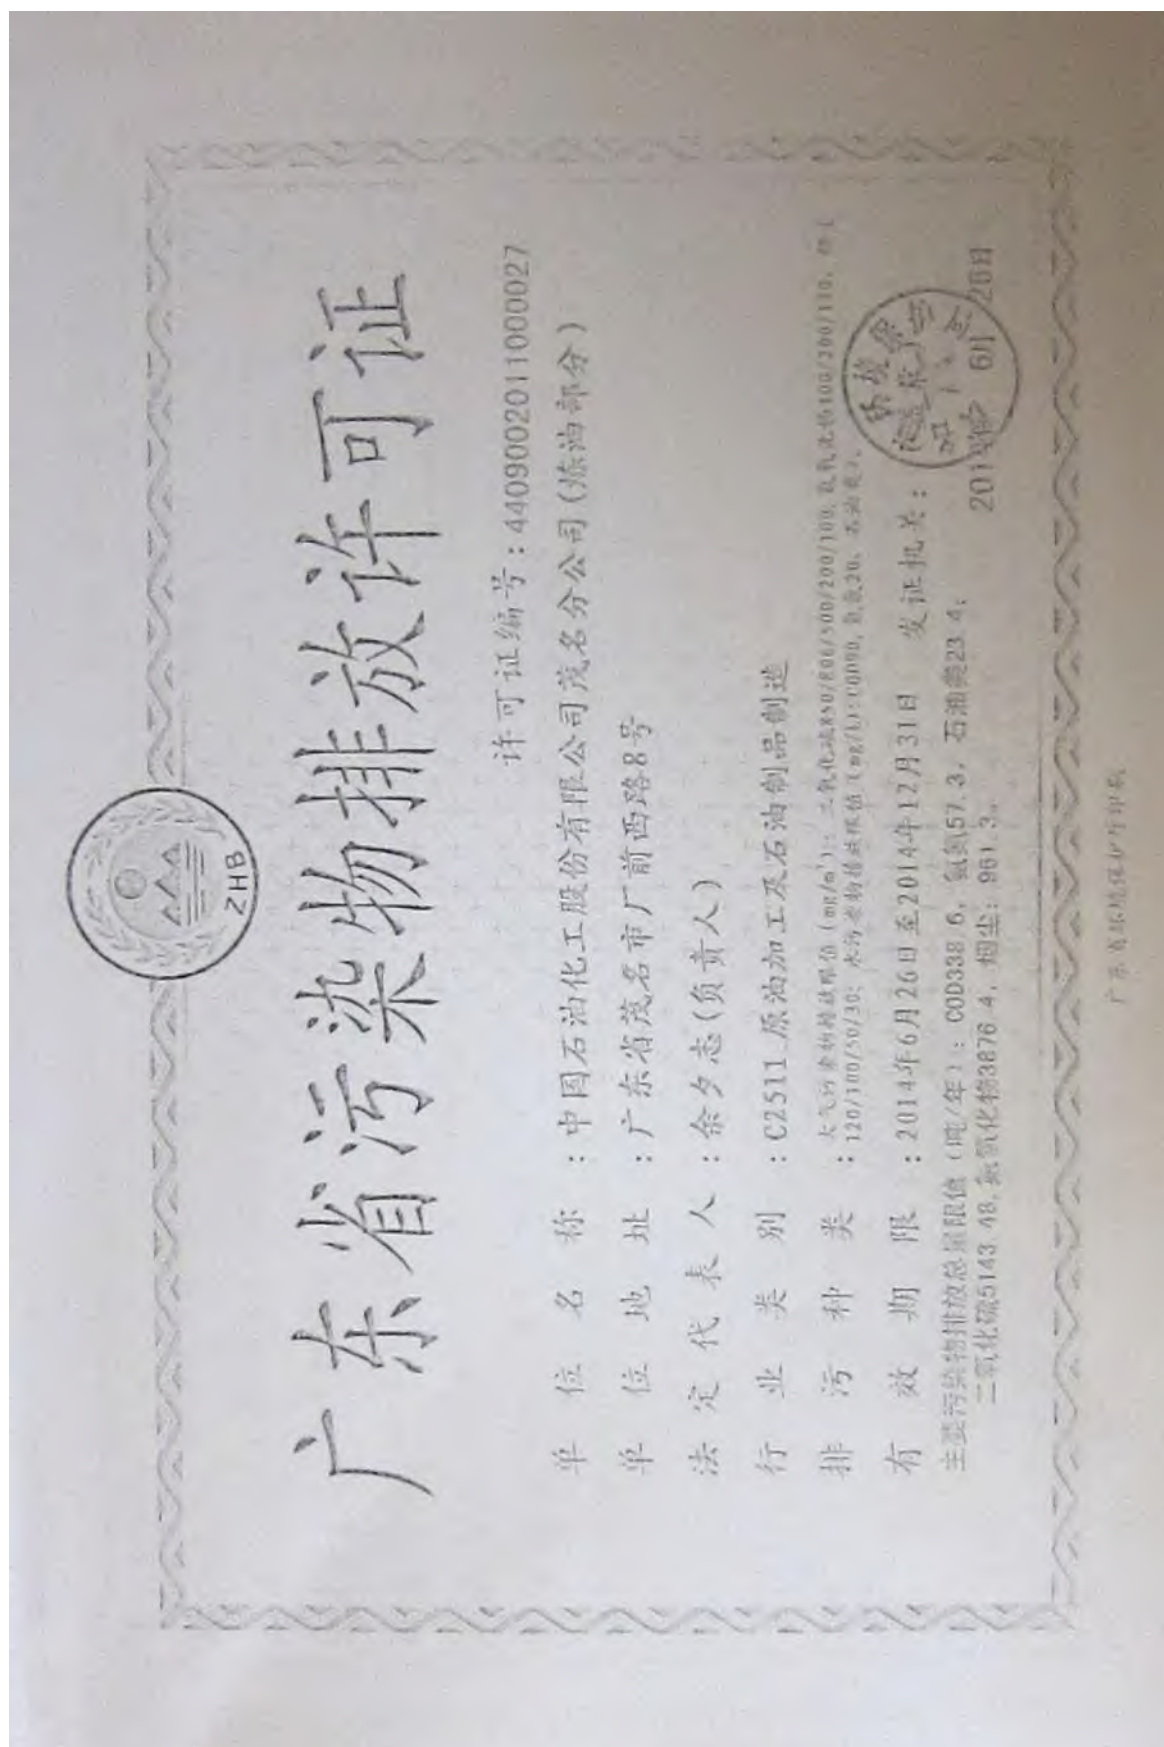 ZHB
广东省污染物排放许可证
许可证编号：4409002011000027
单位名称：中国石油化工股份有限公司茂名分公司(炼油部分)
单位地址：广东省茂名市厂前西路8号
法定代表人：余夕志(负责人)
行业类别：C2511 原油加工及石油制品制造
排污种类：大气污染物排放限值(mg/m³)：二氧化硫850/800/500/200/100,氮氧化物400/200/110,
120/100/50/30；水污染物排放限值(mg/L):COD90,氨氮20,石油类
有效期限：2014年6月26日至2014年12月31日 发证机关：
主要污染物排放总量限值(吨/年)：COD338.6，氨氮57.3，石油类23.4；
二氧化硫5143.48,氮氧化物3876.4，烟尘：961.3。
6月 26日
广东省环境保护厅印制